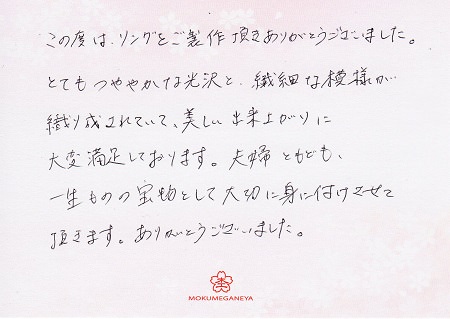 この度は、リングをご製作頂きありがとうございました。
とてもつややかな光沢と、繊細な模様が
織り成されていて、美しい出来上がりに
大変満足しております。夫婦ともども、
一生ものの宝物として大切に身に付けさせて
頂きます。ありがとうございました。
MOKUMEGANEYA